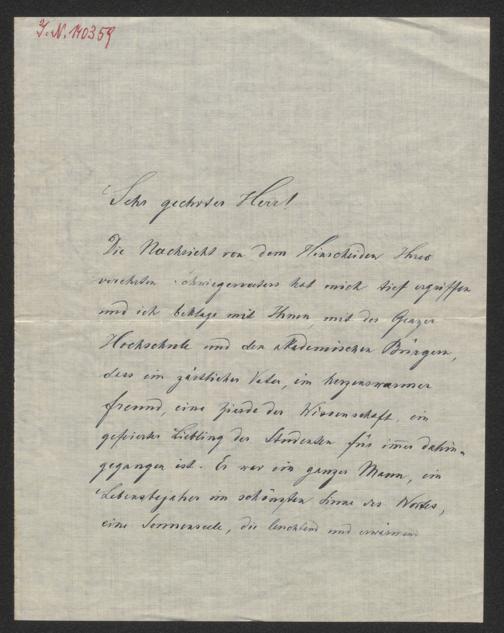 I. N. 140359
Sehr geehrter Herr!
Die Nachricht von dem Hinscheiden Ihres
verehrten Schwiegervaters hat mich tief ergriffen
und ich beklage mit Ihnen, mit der Grazer
Hochschule und den akademischen Bürgern,
dass ein zärtlicher Vater, ein herzenswarmer
Freund, eine Zierde der Wissenschaft, ein
gefeierter Liebling der Studenten für immer dahin-
gegangen ist. Er war ein ganzer Mann, ein
Lebensbejaher im schönsten Sinne des Wortes,
eine Sonnenseele, die leuchtend und erwärmend